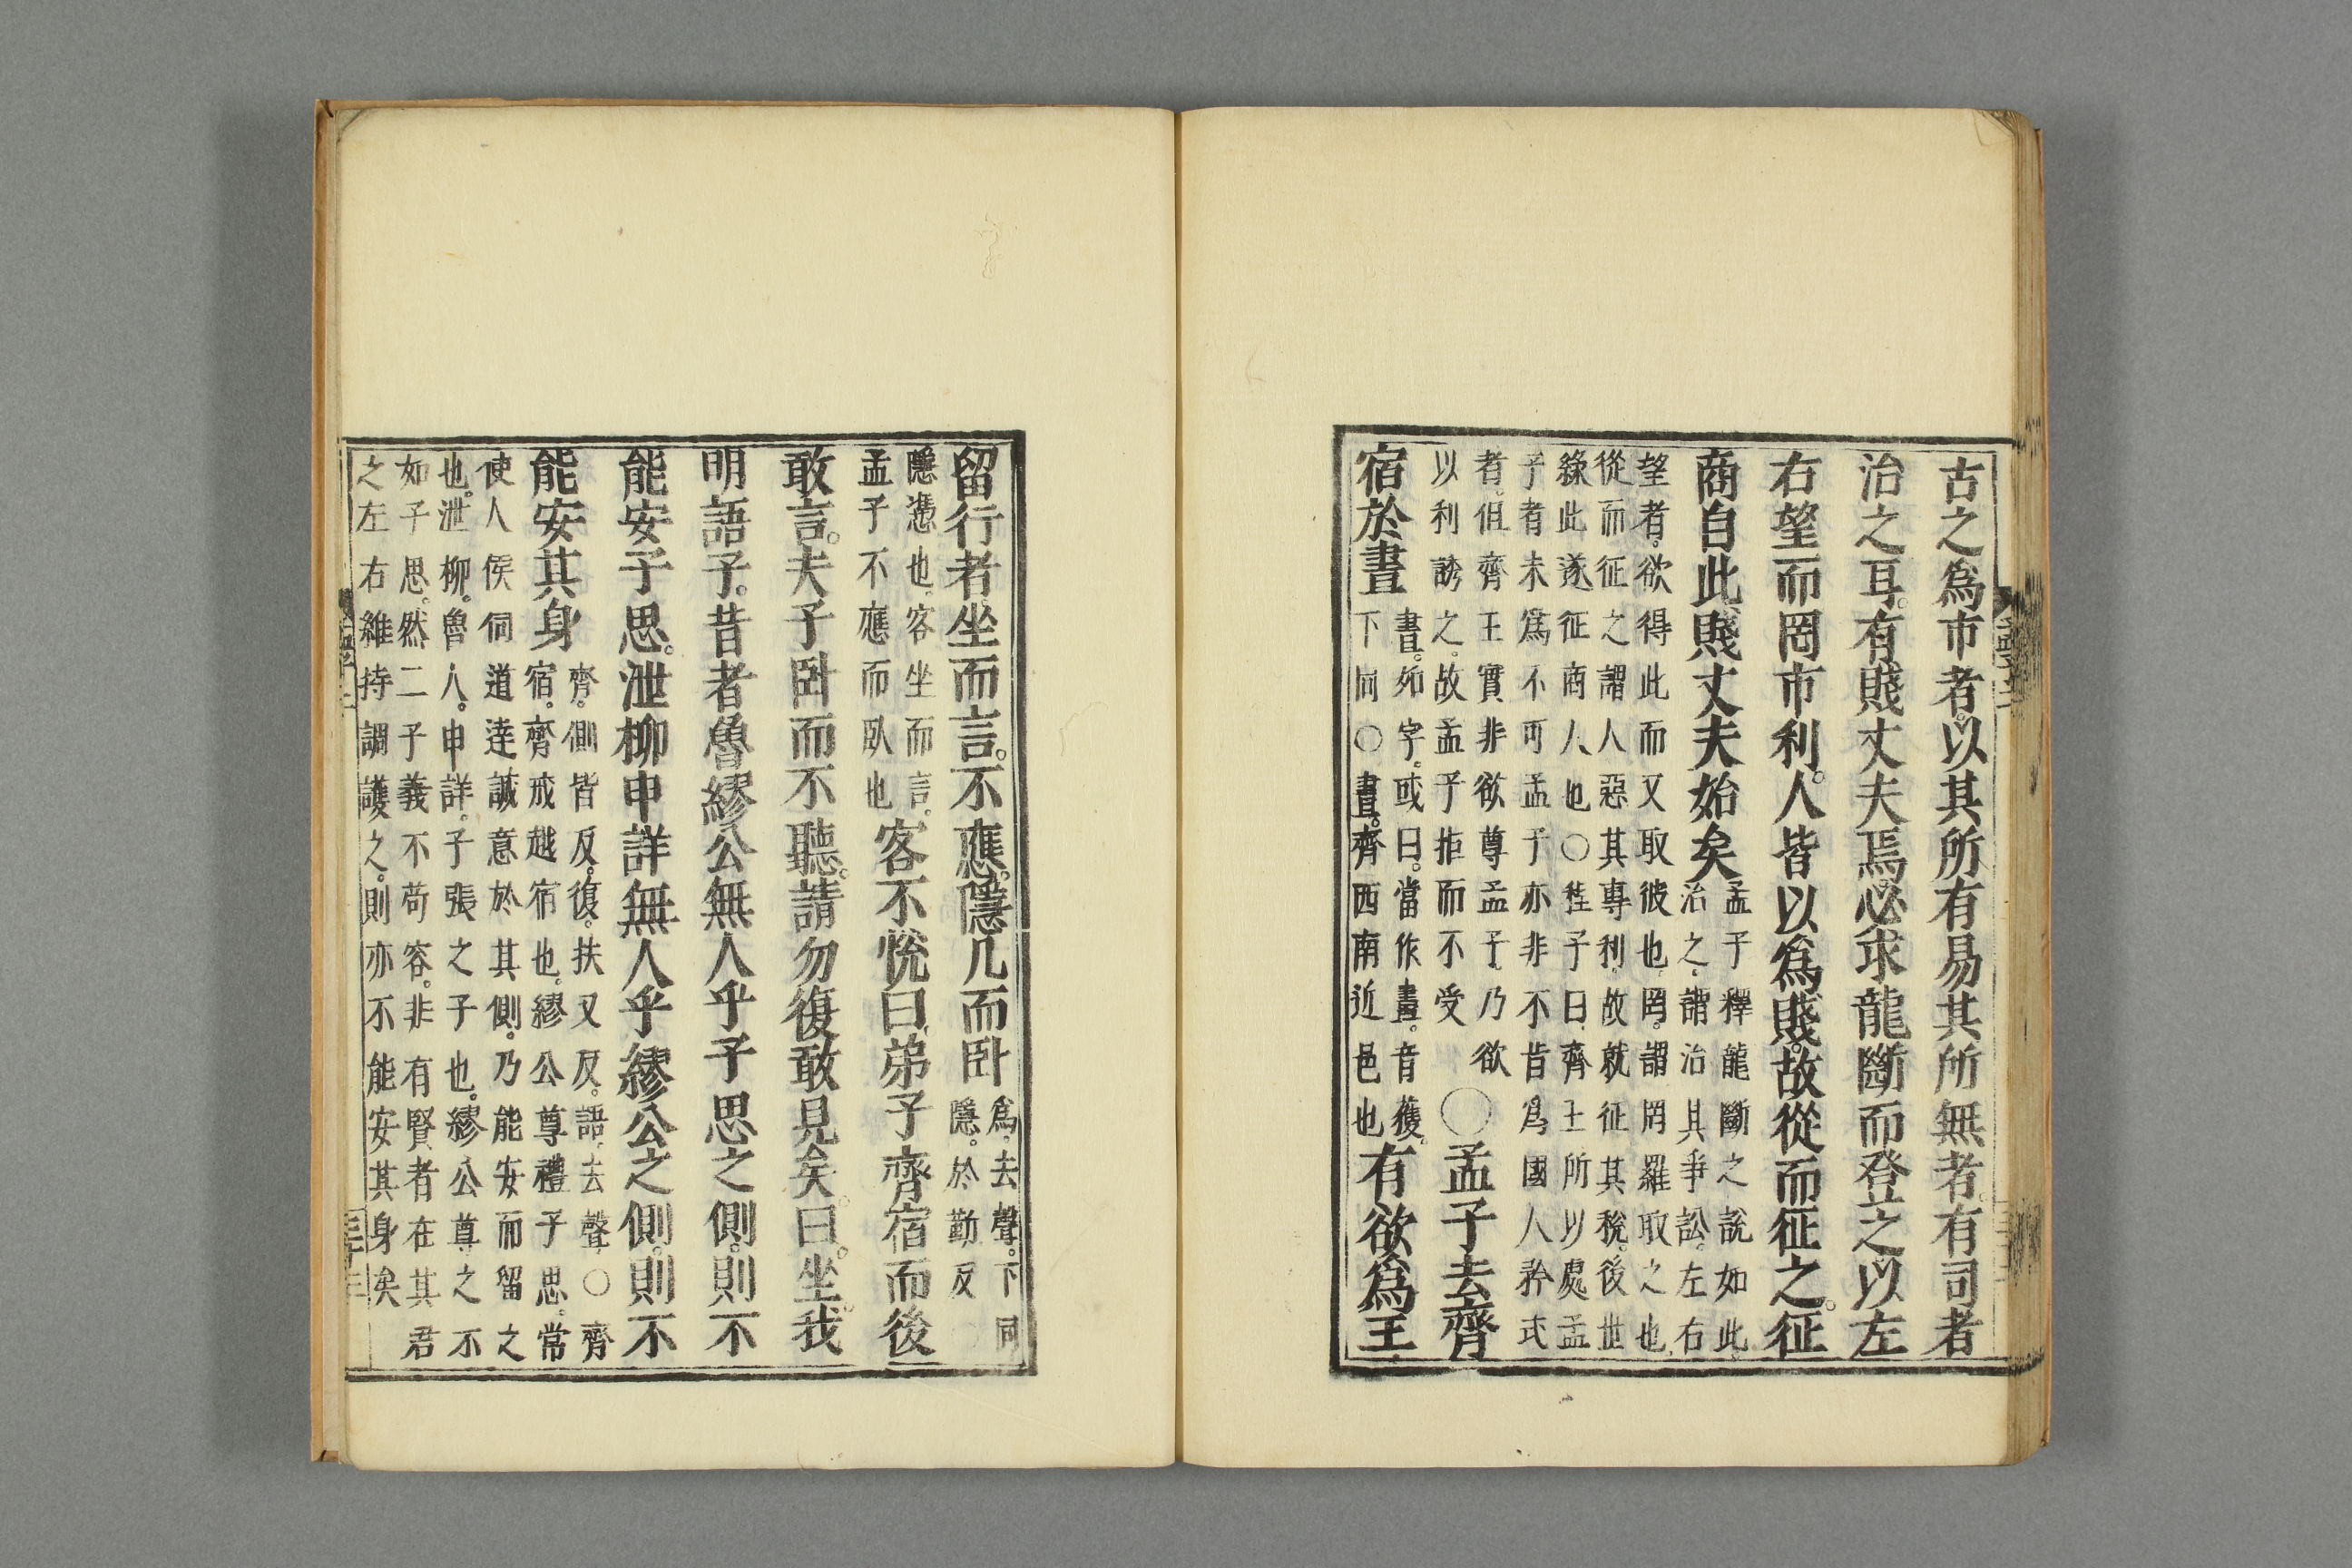 古之爲市者。以其所有易其所無者。有司者
治之耳。有賤丈夫焉。必求龍斷而登之。以左
右望而罔市利。人皆以爲賤。故從而征之。征
商自此賤丈夫始矣
孟子釋龍斷之說如此
治之。謂治其爭訟。左右
望者。欲得此而又取彼也。罔。謂罔羅取之也
從而征之。謂人惡其專利。故就征其稅。後世
緣此遂征商人也○程子曰。齊王所以處孟
子者未爲不可。孟子亦非不肯爲國人矜式
者。但齊王實非欲尊孟子。乃欲
以利誘之。故孟子拒而不受
○孟子去齊
宿於晝
晝。如字。或曰。當作畫。音獲。
下同○晝。齊西南近邑也
有欲爲王
留行者。坐而言。不應。隱几而卧
爲。去聲。下同
隱。於勤反
隱憑也。客坐而言。
孟子不應而臥也
客不悅曰。弟子齊宿而後
敢言。夫子卧而不聽。請勿復敢見矣。曰。坐。我
明語子。昔者魯繆公無人乎子思之側。則不
能安子思。泄柳申詳無人乎繆公之側。則不
能安其身
齊。側皆反。復。扶又反。語。去聲○齊
宿。齊戒越宿也。繆公尊禮子思。常
使人候伺道達誠意於其側。乃能安而留之
也。泄柳。魯人。申詳。子張之子也。繆公尊之不
如子思。然二子義不苟容。非有賢者在其君
之左右維持調護之。則亦不能安其身矣